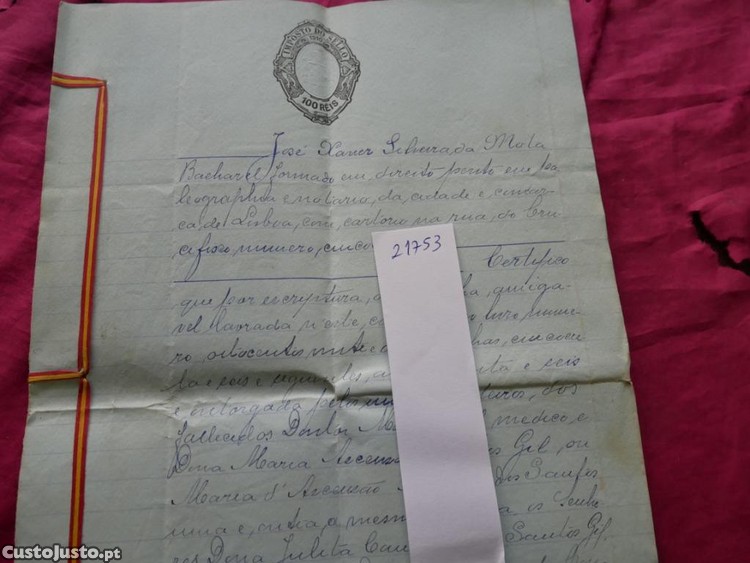 IMPOSTO DO SELLO
100 RÉIS
José Xavier Silveira da Mota
Bacharel formado em direito perito em pa
leographia e notario, da cidade e comar
ca de Lisboa, com cartorio na rua, do Cru
cifixo, numero, cinco
21753
Certifico
que por escriptura, amiga
vel lavrada n'este, livro, nume
ro oitocentos vinte e folhas, cincoen
ta e seis e seguintes, e seis
e outorgada pelos
fallecidos Doutor medico, e
Dona Maria Gil, ou
Maria d'Ascenção dos Santos
uma e, outra a mesma os senho
res Dona Julita Santos Gil
CustoJusto.pt